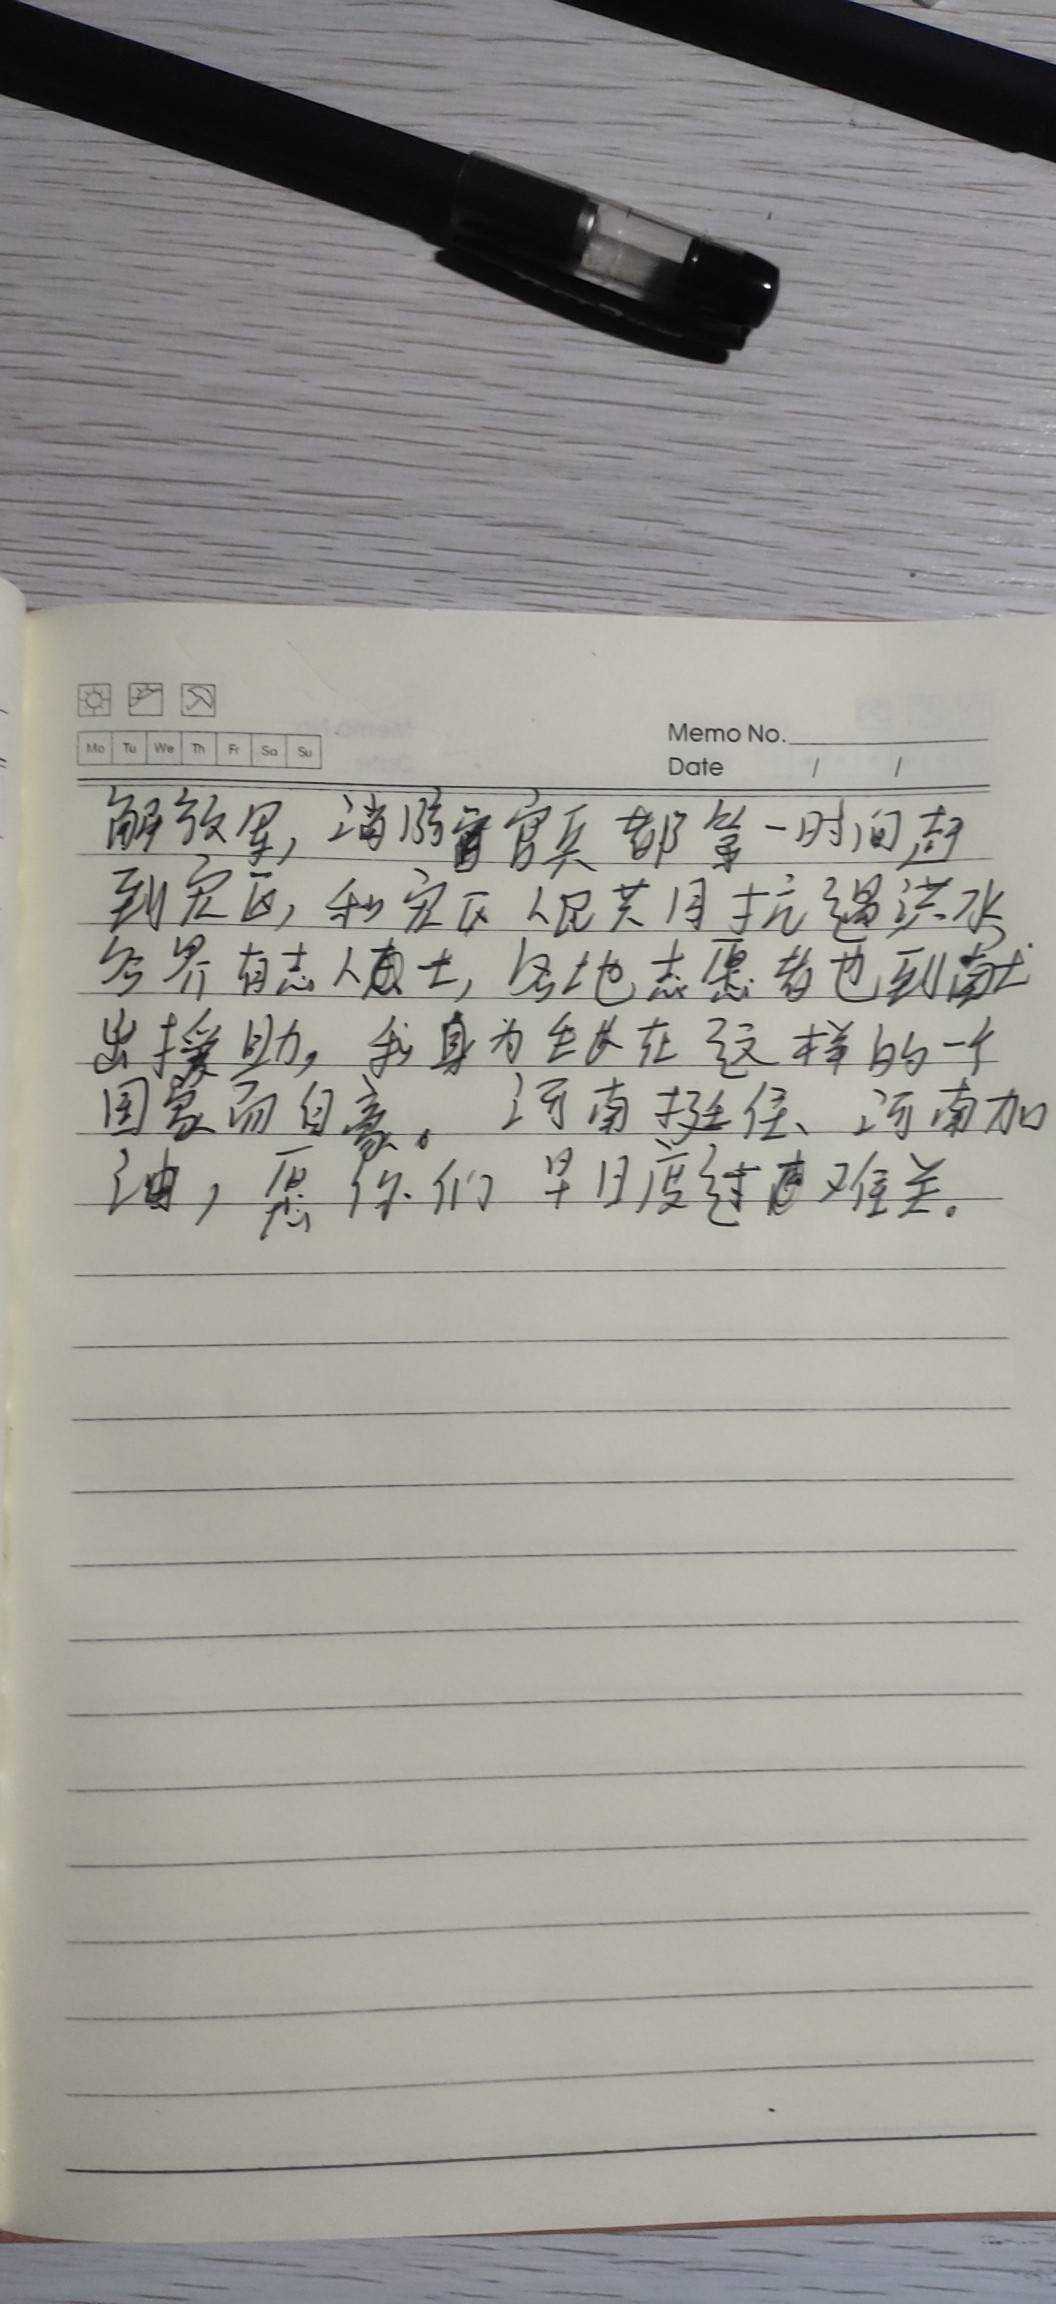 Mo Tu We Th Fr Sa Su
Memo No.
Date / /
解放军，消防官兵都第一时间赶
到灾区，和灾区人民共同抗遇洪水
各界有志人士，各地志愿者也到献
出援助，我身为生长在这样的一个
国家而自豪。河南挺住、河南加
油，愿你们早日度过难关。